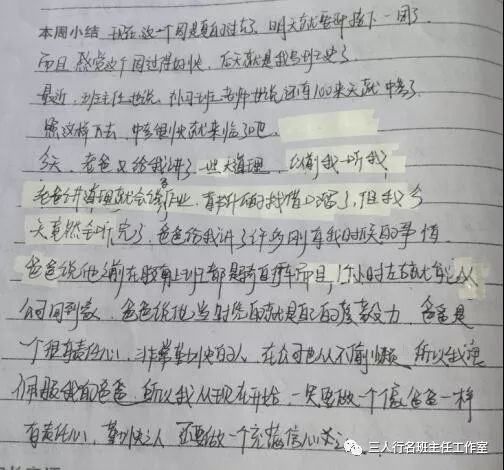 本周小结 现在这一个周是真的过去了，明天就要迎接下一周了
而且感觉这个周过得好快，后天就是我写班史了
最近，班主任也说，补习班老师也说还有100来天就中考了
照这样下去，中考很快就来临了吧
今天，老爸又给我讲了一些大道理，以前我一听我
老爸讲道理就会
天竟然全听完了，爸爸给我讲了许多刚有我时候的事情
爸爸说他之前在上班都是骑自行车而且，1个小时左右
时间到家，爸爸说他当时凭的就是自己的毅力，爸爸是
个很有责任心，非常勤快的人，在公司也从不偷懒 所以我很
佩服我的爸爸，所以我从现在开始一定要做一个像爸爸一样
有责任心，勤快之人 还要做一个充满信心之人
三人行名班主任工作室